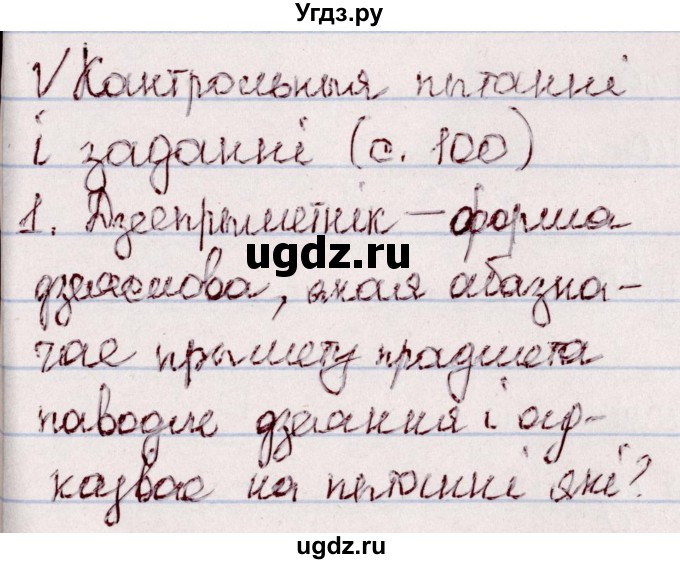 Угдз.ру
√ Кантрольныя пытанні
і заданні (с. 100)
1. Дзеепрыметнік — форма
ugdz.ru
дзеяслова, якая абазна-
чае прымету прадмета
паводле дзеяння і ад-
казвае на пытанні які?
ugdz.ru